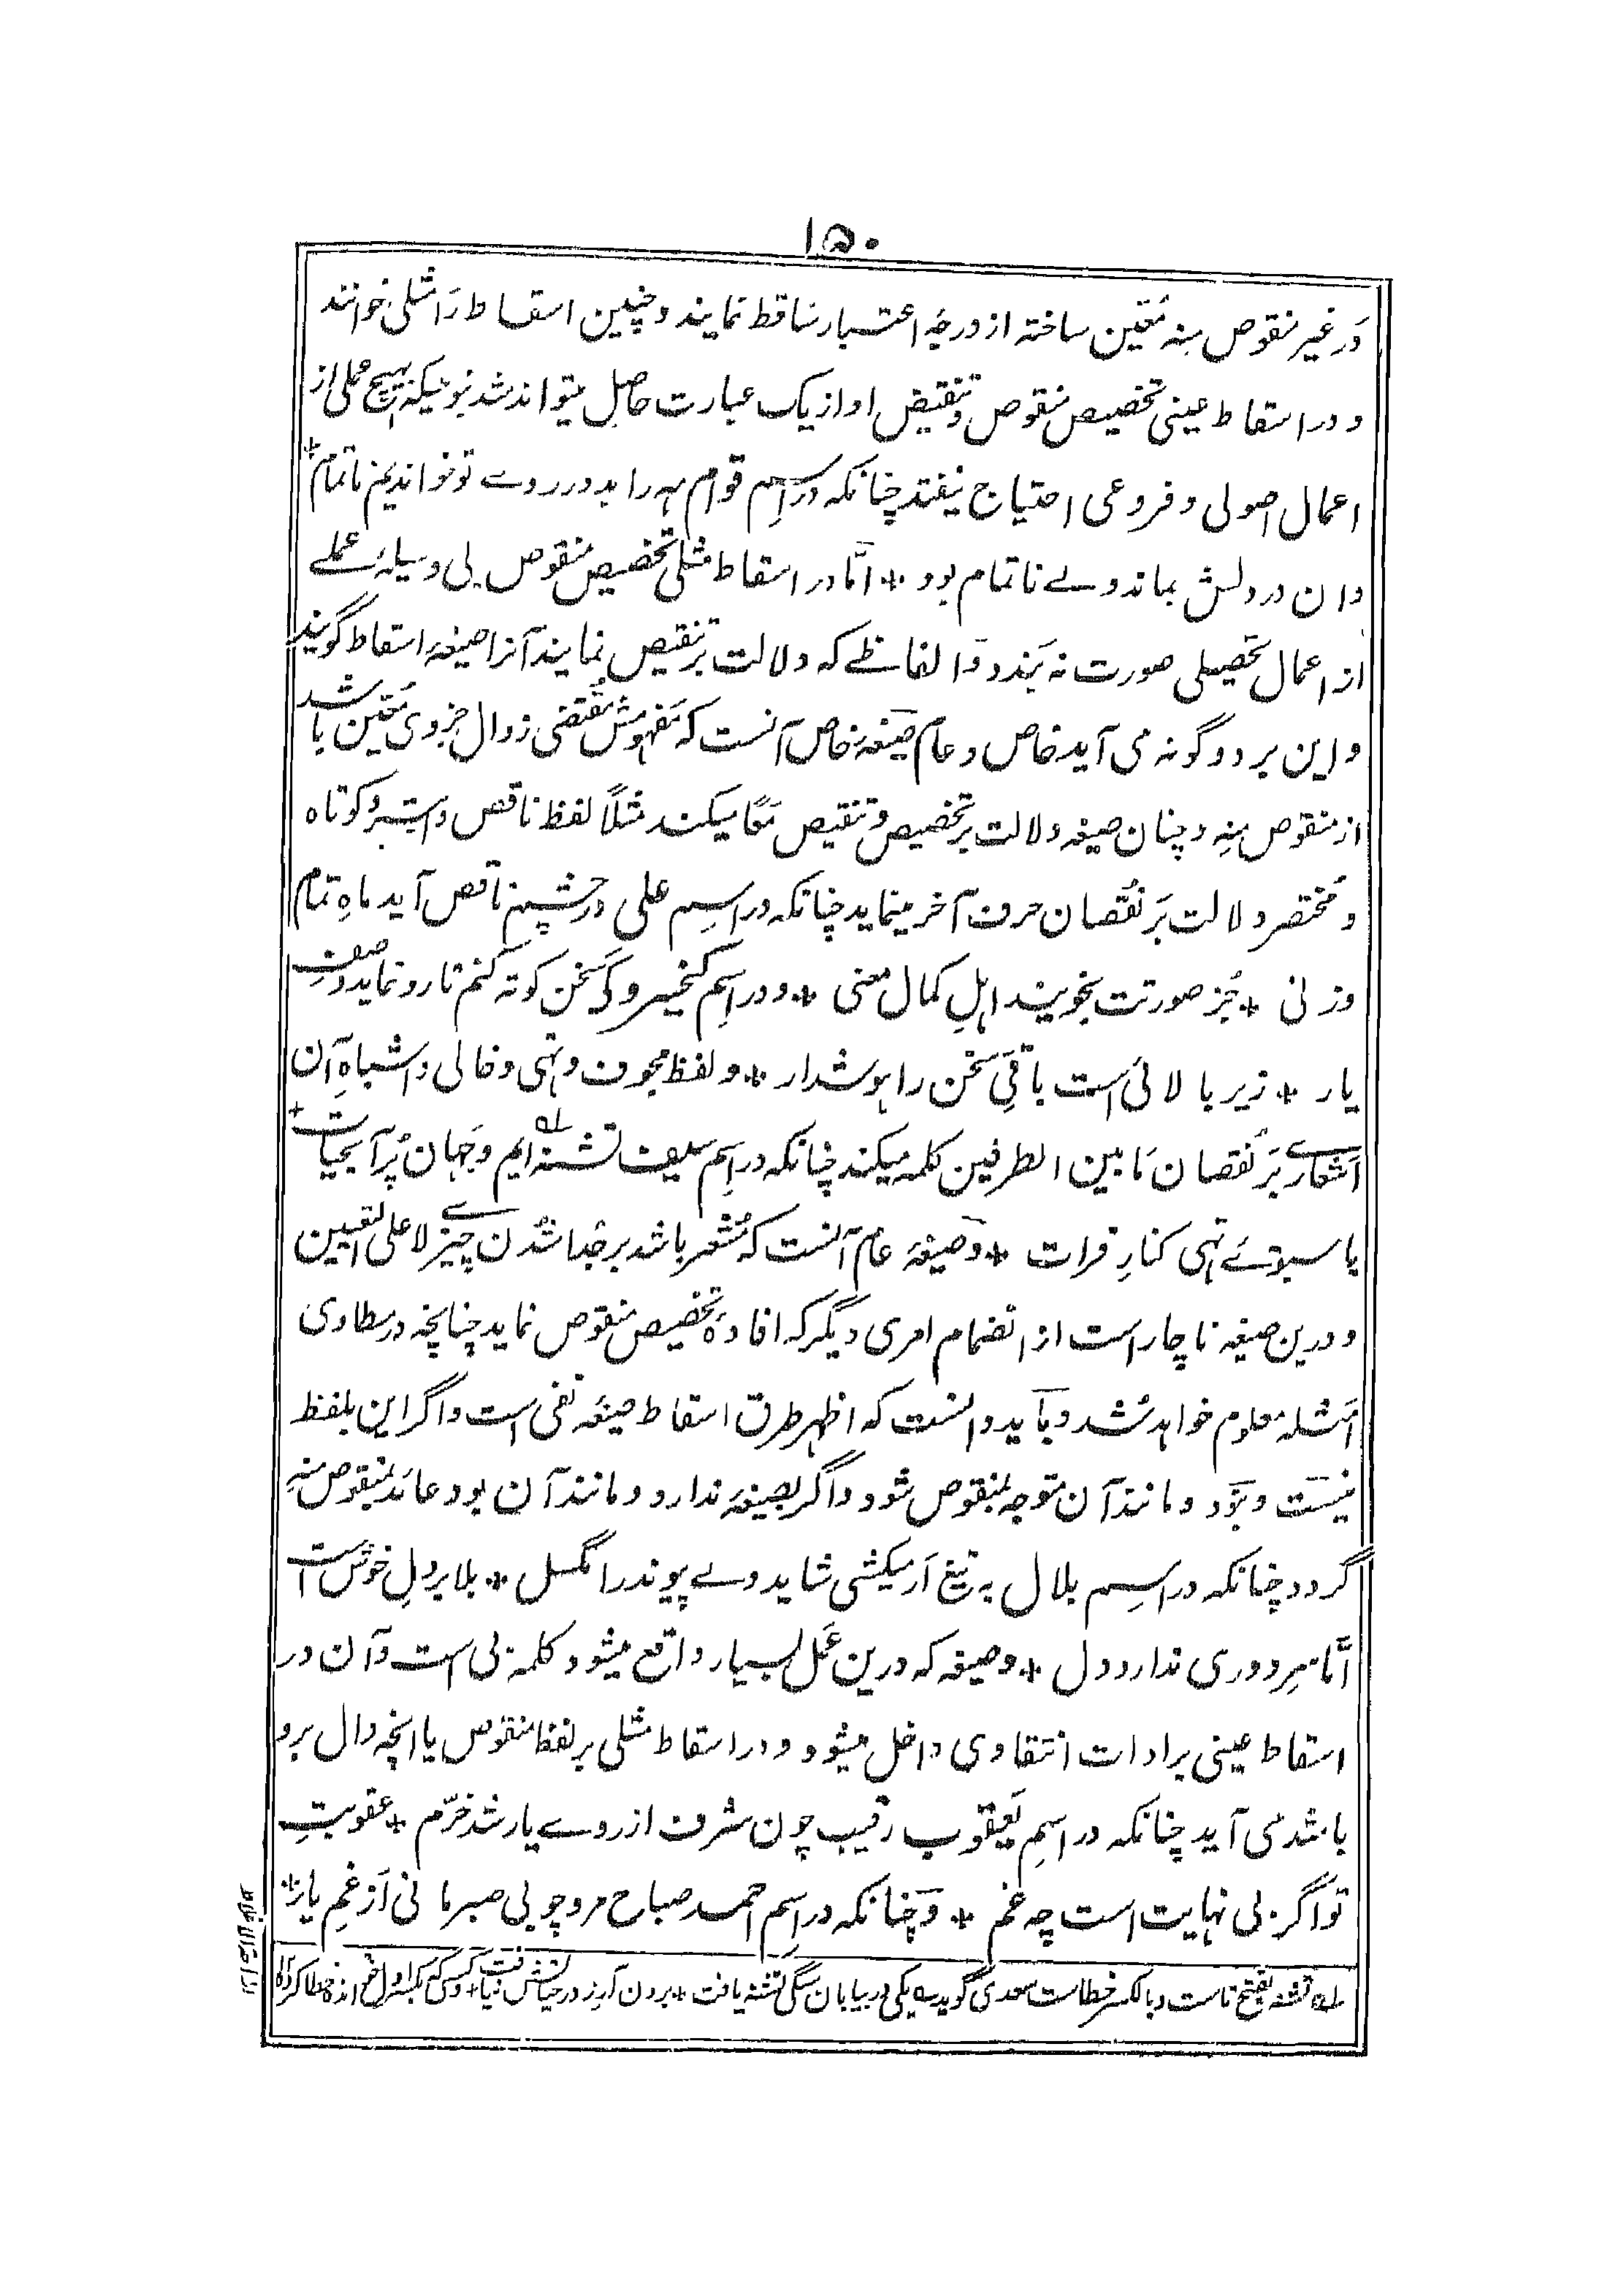 ۱۵۰
در غیر منقوص منه مُعین ساخته از درجهٔ اعتبار ساقط نمایند و چنین اسقاط را مثلی خوانند
و در اسقاط عینی تخصیص منقوص و تنقیص او از یک عبارت حاصل میتواند شد بنوعیکه بهیچ عملی از
اعمال اصولی و فروعی احتیاج نیفتد چنانکه در اسم قوام هه را بد در روے تو خواندیم ناتمام *
وان در دلش بماند ولے ناتمام بود * امّا در اسقاط مثلی تخصیص منقوص بی وسیلهٔ عملے
از اعمال تحصیلی صورت نه بَندد و الفاظے که دلالت بر تنقیص نمایند آنرا صیغهٔ اسقاط گویند
و این بر دو گونه می آید خاص و عام صیغهٔ خاص آنست که مفهومش مُقتضی زوال جزوی مُعین باشد
از منقوص منه و چنان صیغه دلالت بر تخصیص و تنقیص معًا میکند مثلًا لفظ ناقص و ابتر و کوتاه
و مُختصر دلالت بَر نُقصان حرف آخر مینماید چنانکه در اسِم علی در چشم ناقص آید ماهِ تمام
وزنی * جُز صورتت بجویند اهلِ کمال معنی * و در اسِم کیخسرو کَی سَخن کوته کنم تا رو نماید وصف
یار * زیر بالائی است باقیِ سَخن را هوشدار * و لفظ مجوف و تهی و خالی و اشباهِ آن
اَشعارے بَر نُقصان مَا بین الطرفین کلمه میکند چنانکه در اسِم سیف تشنهٔ ایم و جَهان پُر آبحیات *
یا سبوئے تهی کنارِ فرات * و صیغهٔ عام آنست که مُشعر باشد بر جُدا شُدن چیزے لا علی التعیین
و درین صیغه ناچار است از انضمام امری دیگر که افادهٔ تخصیص منقوص نماید چنانچه در مطاوی
اَمثله معلوم خواهد شد و بآید دانست که اظهر طرق اسقاط صیغهٔ نفی است و اگر این بلفظ
نیست و نبَود و مانند آن متوجه بمنقوص شود و اگر بصیغهٔ ندارد و مانند آن بود عائد بمنقوص منه
گردد چنانکه در اسِم بلال به تیغ اَر میکشی شاید ولے پیوند را مگسل * بلا بر دلِ خوش است
امّا سرِ دوری ندارد دل * و صیغه که درین عَمل بسیار واقع میشود کلمهٔ بی است و آن در
اسقاط عینی بر ادات انتقادی داخل میشود و در اسقاط مثلی بر لفظ منقوص یا انچه دال برو
باشد می آید چنانکه در اسِم یَعقوب رقیب چون شرف از روے یار شد خرّم * عقوبتِ
تو اگر بی نهایت است چه غم * و چَنانکه در اسِم احمد صباح مرو چو بی صبر مانی اَز غمِ یار *
لـه تشنه بفتح تاست و بالکسر خطاست سعدی گوید ـه یکی در بیابان سگی تشنه یافت * برون از رمق در حیاتش نیافت و کسی که بکسر اول خوانده خطا کرده